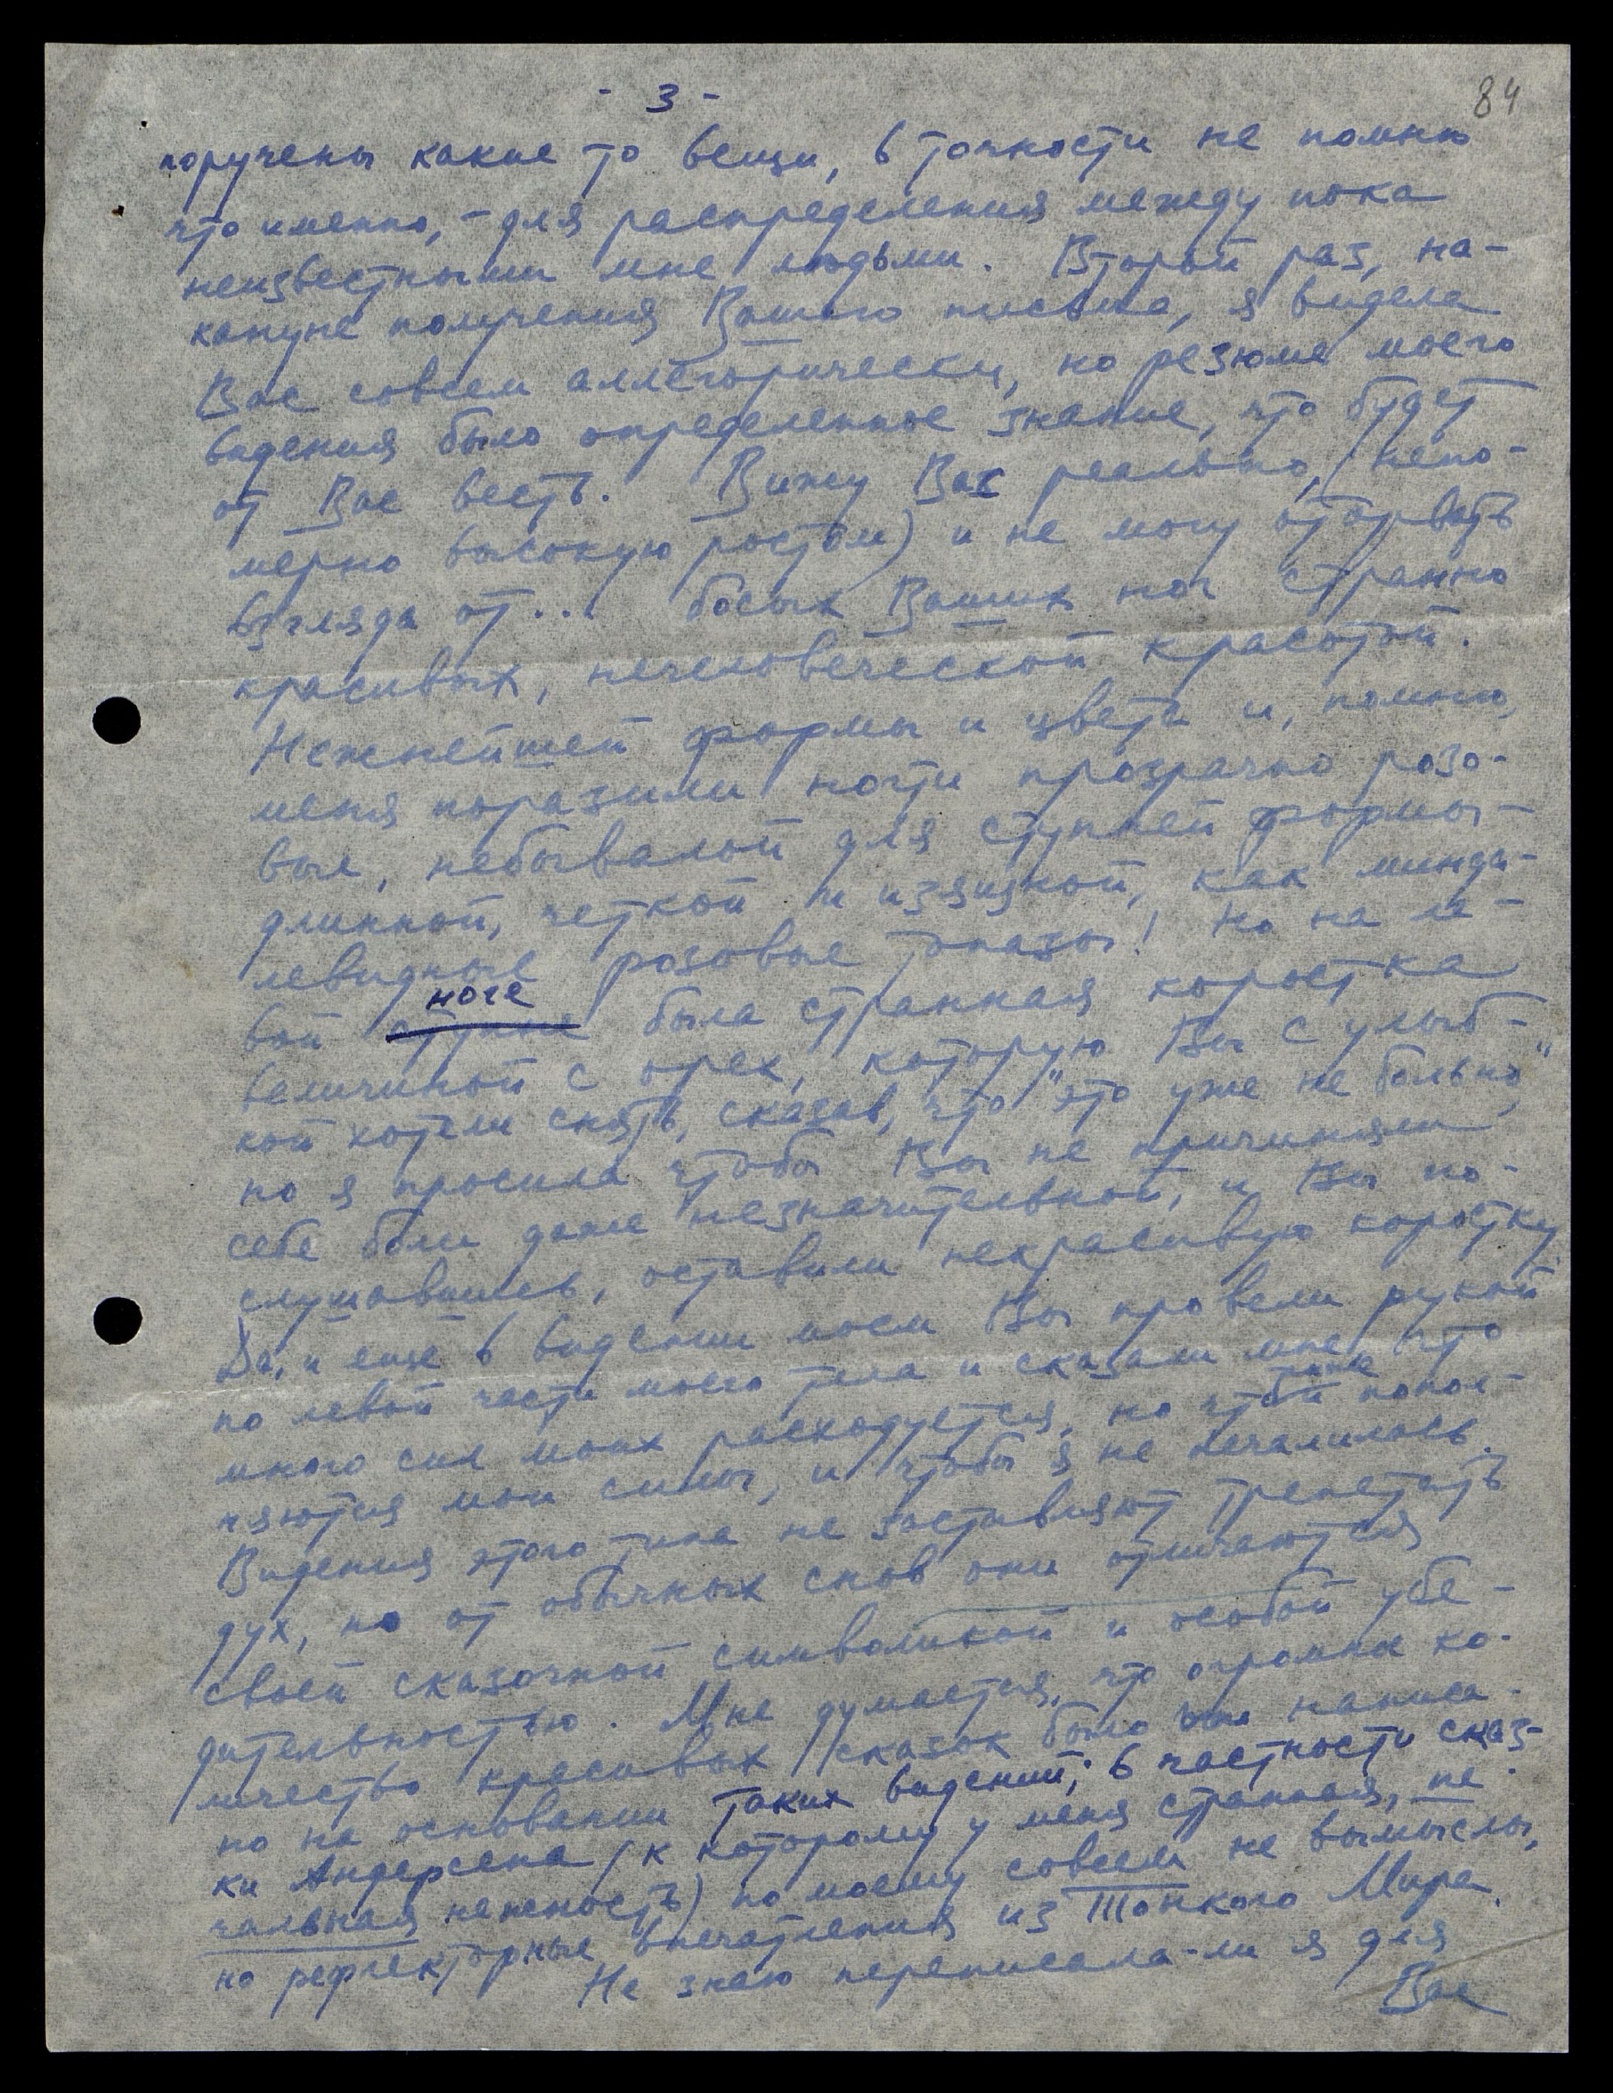 - 3 -
84
поручены какие то вещи, в точности не помню
что именно, - для распределения между пока
неизвестными мне людьми. Второй раз, на-
кануне получения Вашего письма, я видела
Вас совсем аллегорически, но резюме моего
видения было определенное знание, что будет
от Вас весть. Вижу Вас реально, (непо-
мерно высокую ростом) и не могу оторвать
взгляда от... босых Ваших ног странно
красивых, нечеловеческой красотой.
Нежнейшей формы и цвета и, помню,
меня поразили ногти прозрачно розо-
вые, небывалой для ступней формы -
длинной, четкой и изящной, как минда-
левидные розовые топазы! Но на ле-
вой ноге была странная коростка
величиной с орех, которую Вы с улыб-
кой хотели снять, сказав, что "это уже не больно,"
но я просила чтобы Вы не причиняли
себе боли даже незначительной, и Вы по-
слушавшись, оставили некрасивую коростку.
Да, и ещё в видении моем Вы провели рукой
по левой части моего тела и сказали мне, что
много сил моих расходуется, но что тоже попол-
няются мои силы, и чтобы я не печалилась.
Видения этого типа не заставляют трепетать
дух, но от обычных снов они отличаются
своей сказочной символикой и особой убе-
дительностью. Мне думается, что огромное ко-
личество красивых сказок было написа-
но на основании таких видений; в частности сказ-
ки Андерсена (к которому у меня странная, пе-
чальная нежность) по моему совсем не вымыслы,
но рефлекторные впечатления из Тонкого Мира.
Не знаю переписала-ли я для
Вас